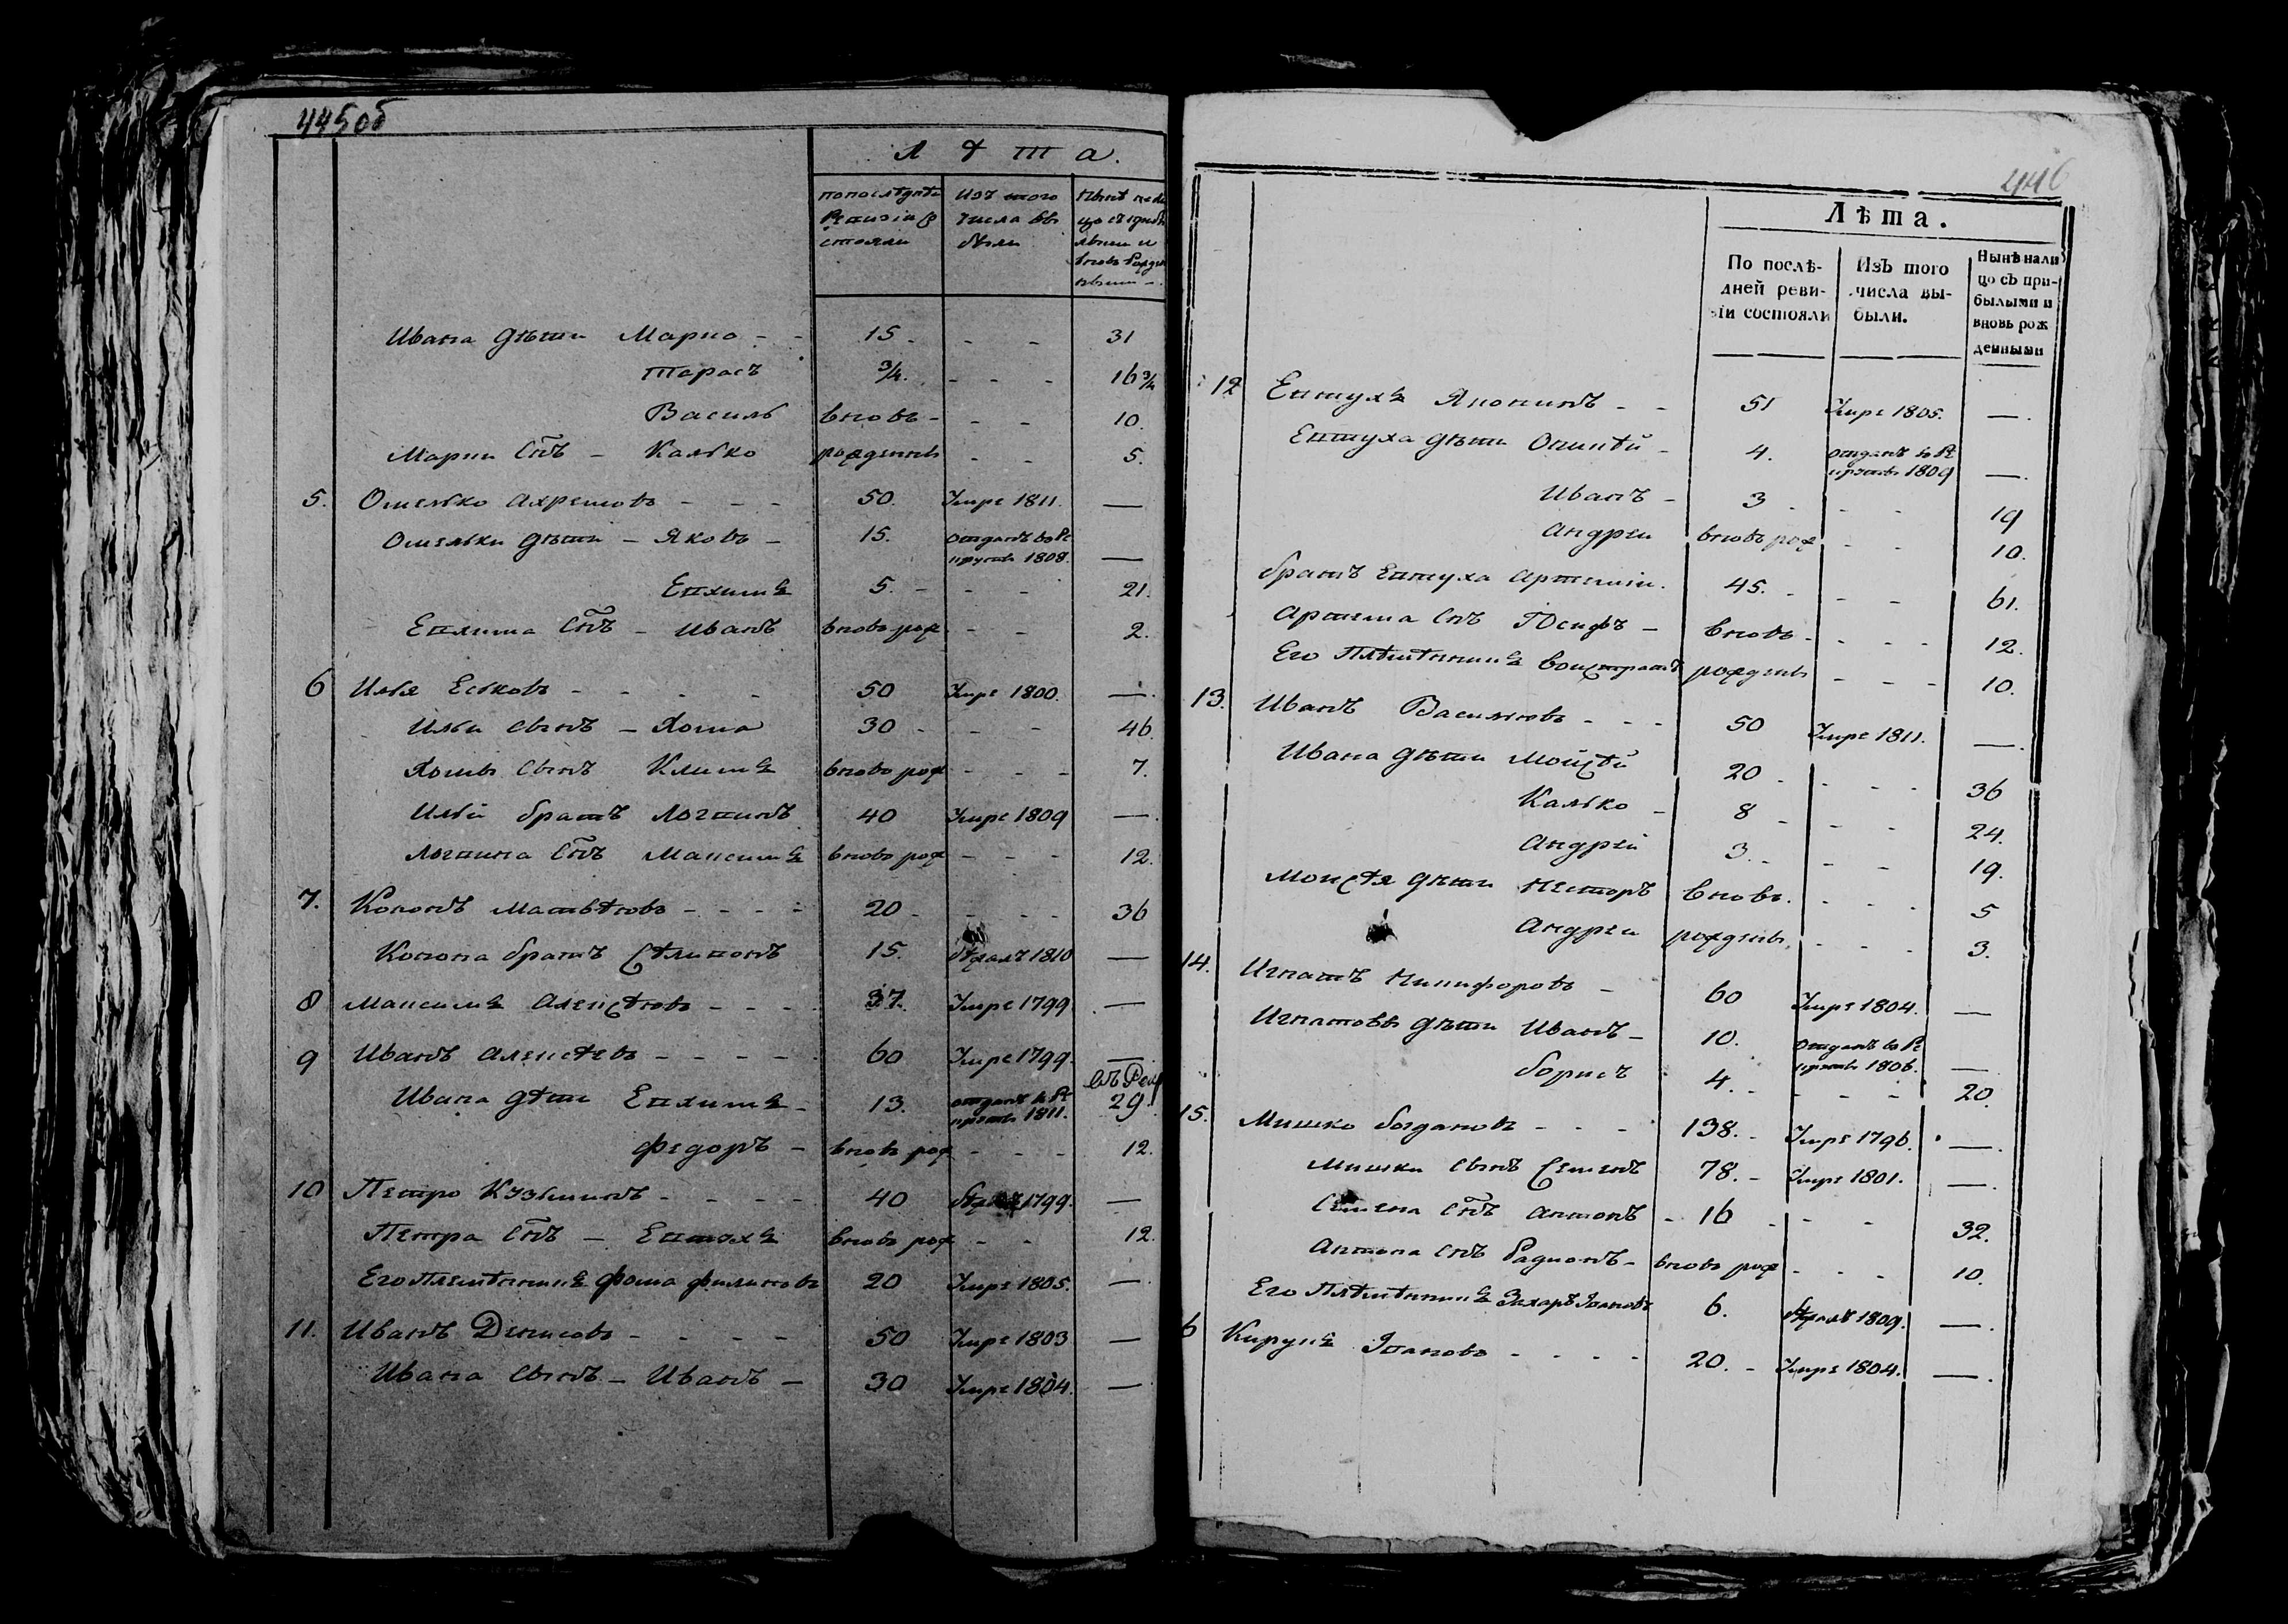 445об
Лѣта.
по последней Ревизіи состояли
Изъ того числа вы были
Ивана дѣти Марко - - 15 - - - 31
Тарасъ 3/4. - - - 16 3/4
Василь вновь - - - 10.
Марки Снъ - Калько рожденнъ - - 5.
5. Омелько Ахремовъ - - - 50. Умре 1811. —
Омельки дѣти - Яковъ - 15. отданъ въ Рекруты 1808. —
Евхимъ 5. - - - 21.
Евхима Снъ - Иванъ вновь рож - - 2.
6 Илья Еськовъ - - - - 50 Умре 1800. —
Ильи Сынъ - Хома 30 - - - 46.
Хомы Сынъ Климъ вновь рож - - - 7.
Ильи братъ Логвинъ 40 Умре 1809 —
Логвина Снъ Максимъ вновь рож - - - 12.
7. Кононъ Матвѣювъ - - - - 20 - - - - 36
Конона братъ Сѣлионъ 15. бежалъ 1810 —
8 Максимъ Алексѣювъ - - - - 37. Умре 1799 —
9 Иванъ Алексѣевъ - - - - 60 Умре 1799. —
Ивана дѣти Евхимъ - 13. отданъ въ Рекруты 1811. 29
Федоръ - вновь рож - - - 12.
10 Петро Кузьминъ - - - - 40 1799. —
Петра Снъ - Евтухъ вновь рож - - 12.
Его Племѣнникъ Фома Филиповъ 20 Умре 1805. —
11. Иванъ Денисовъ - - - - 50 Умре 1803 —
Ивана Сынъ - Иванъ - 30 Умре 1804. —
446
Лѣта.
По послѣдней ревизіи состояли
Изъ того числа выбыли.
Нынѣ налицо съ прибылыми и вновь рожденными
12 Евтухъ - - 51 Умре 1805. —
Евтуха дѣти - 4. отданъ въ Рекруты 1809 —
Иванъ - 3 - - - 19
Андреи вновь рож - - 10.
братъ Евтуха Артемій. 45. - - - 61.
Артема Снъ Юсифъ - вновь - - - - 12.
Его Плѣмѣнникъ рожденъ - - - 10.
13. Иванъ Васильювъ - - - 50 Умре 1811. —
Ивана дѣти Мойсѣй 20 - - - - 36
Калько - 8 - - - 24.
Андрѣй 3. - - - 19.
Моисѣя дѣти Несторъ вновь. - - - 5
Андреи рожденъ, - - - 3.
14. Игнатъ Никифоровъ - 60 Умре 1804. —
Игнатовы дѣти Иванъ - 10. отданъ въ Рекруты 1806. —
борисъ 4. - - - - 20.
15. Мишко богдановъ - - - 138. - Умре 1796. —
Мишки Сынъ Семенъ 78. - Умре 1801. —
Семена Снъ Антонъ - 16 - - - 32.
Антона Снъ Радионъ - вновь рож - - - 10.
Его Плѣмѣнникъ Захаръ 6. бежалъ 1809. —
6 - - - - 20. - Умре 1804. —